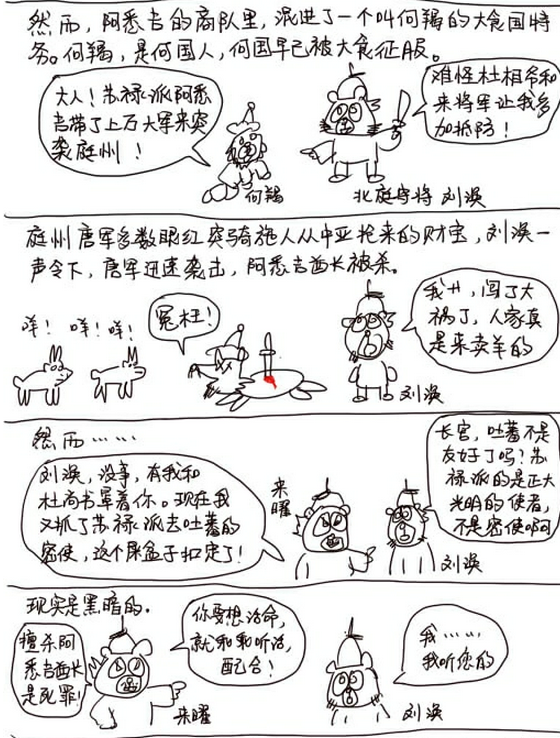 然而，阿悉吉的商队里，混进了一个叫何羯的大食国特
务。何羯，是何国人，何国早已被大食征服。
大人！苏禄派阿悉
吉带了上万大军来突
袭庭州！
何羯
难怪杜相爷和
来将军让我多
加抵防！
北庭守将 刘涣
庭州唐军多数眼红突骑施人从中亚抢来的财宝，刘涣一
声令下，唐军迅速袭击，阿悉吉酋长被杀。
咩！ 咩！咩！
冤枉！
我廾，闯了大
祸了，人家真
是来卖羊的
刘涣
然而……
刘涣，没事，有我和
杜尚书罩着你。现在我
又抓了苏禄派去吐蕃的
密使，这个屎盆子扣定了！
来
曜
长官，吐蕃不是
友好了吗？苏
禄派的是正大
光明的使者，
不是密使啊
刘涣
现实是黑暗的．
擅杀阿
悉吉酋长
是死罪！
你要想活命，
就乖乖听话，
配合！
来曜
我……
我听您的
刘涣